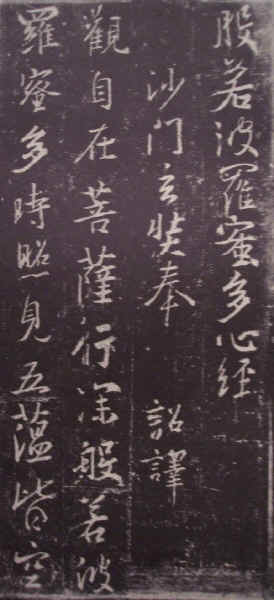 般若波羅蜜多心経
沙門玄奘奉 詔譯
觀自在菩薩行深般若波
羅蜜多時照見五蘊皆空